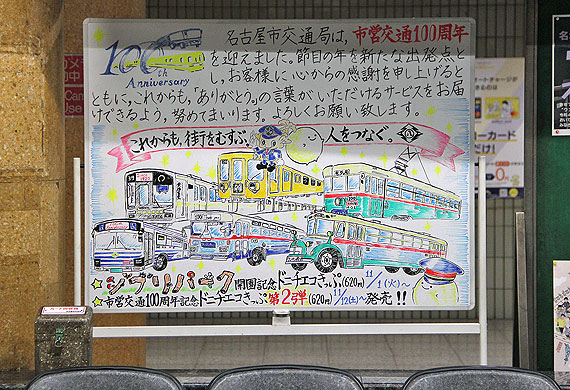 名古屋市交通局は、市営交通100周年
100th
Anniversary
を迎えました。節目の年を新たな出発点と
し、お客様に心からの感謝を申し上げると
ともに、これからも、「ありがとう。」の言葉がいただけるサービスをお届
けできるよう、努めてまいります。よろしくお願い致します。
これからも、街をむすぶ、人をつなぐ。
★ジブリパーク開園記念ドニチエコきっぷ(620円)11/1(火)~
★市営交通100周年記念ドニチエコきっぷ第2弾(620円)11/12(土)~発売!!
カード